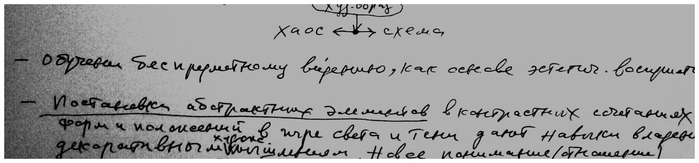 худ. образ
хаос ↔ схема
– Обучении беспредметному видению, как основе эстетич. восприят
– Постановки абстрактных элементов в контрастных сочетаниях
форм и положений в игре света и тени дают навыки владен
декоративным мышлением. Новое понимание (отношение)